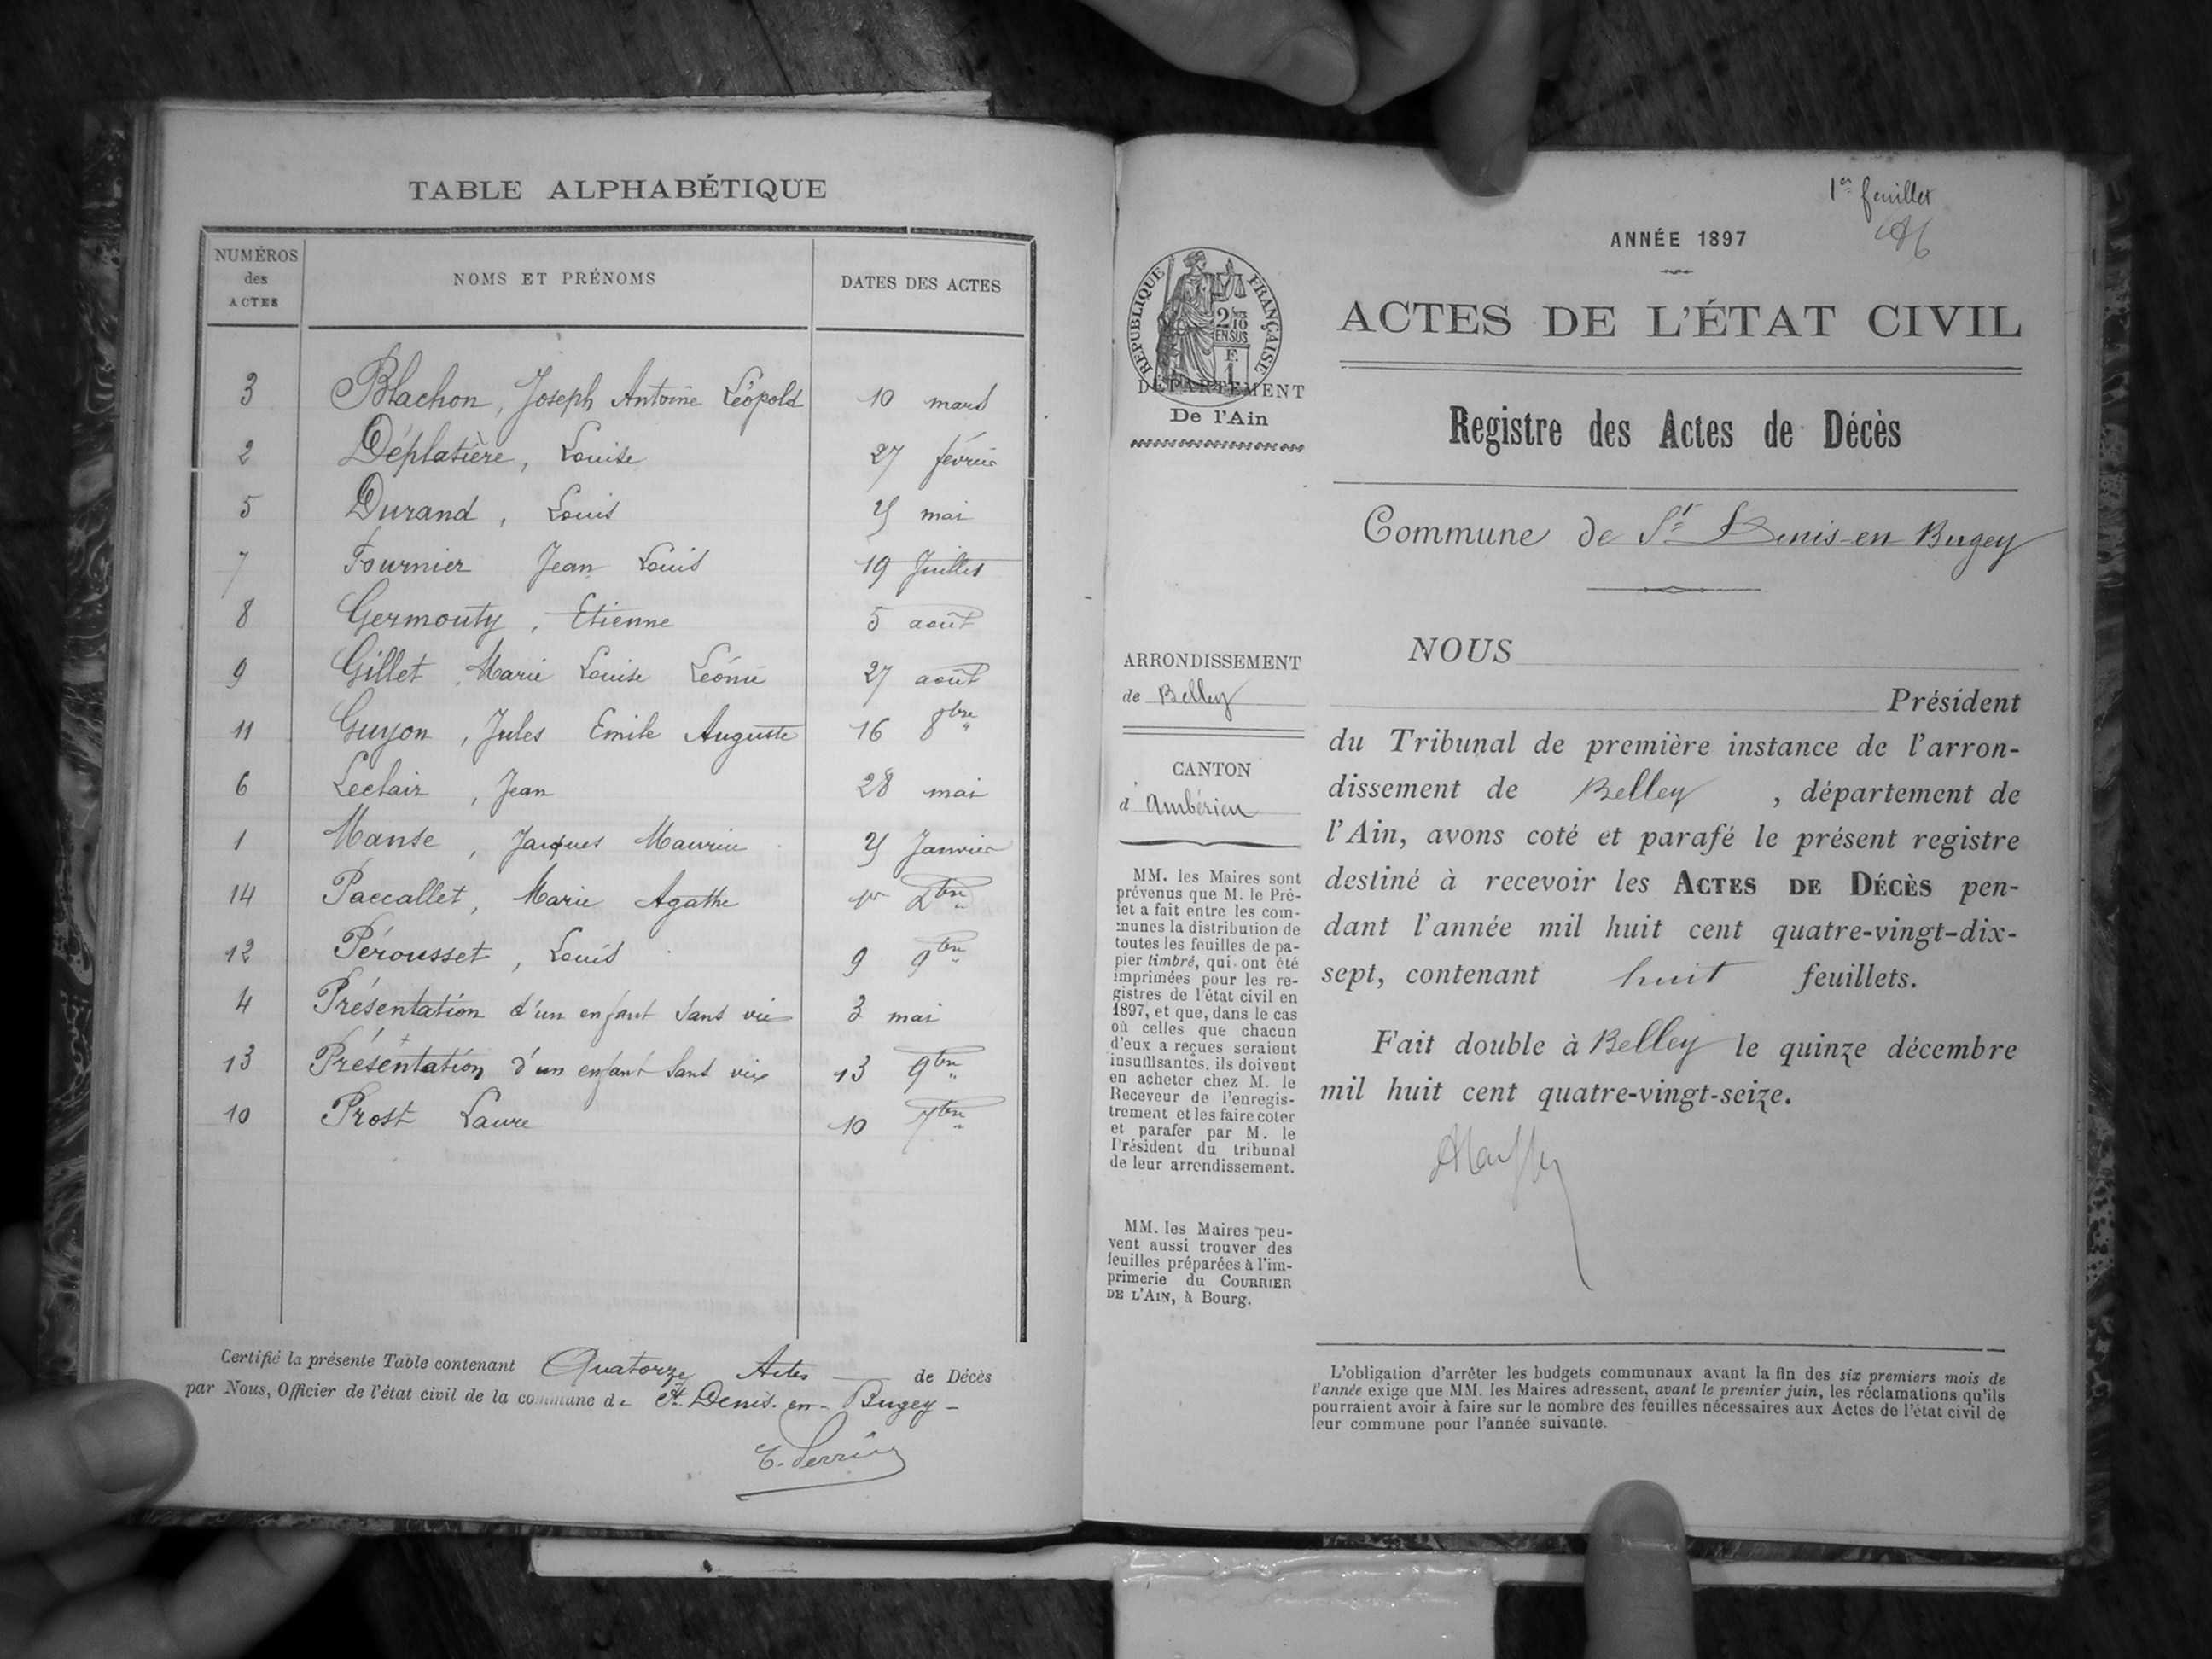 TABLE ALPHABÉTIQUE
NUMÉROS des ACTES NOMS ET PRÉNOMS DATES DES ACTES
3 Blachon, Joseph Antoine Léopold 10 mars
2 Déplatière, Louise 27 février
5 Durand, Louis mai
7 Fournier Jean Louis 19 Juillet
8 Germouty, Etienne 5 août
9 Gillet Marie Louise Léonie 27 août
11 Guyon, Jules Emile Auguste 16 8bre
6 Leclair, Jean 28 mai
1 Manse, Jacques Maurice Janvier
14 Paccallet, Marie Agathe 1er
12 Pérousset, Louis 9 9bre
4 Présentation d'un enfant sans vie 3 mai
13 Présentation d'un enfant sans vie 13 9bre
10 Prost Laure 10 7bre
Certifié la présente Table contenant Quatorze Actes de Décès
par Nous, Officier de l'état civil de la commune de St. Denis-en-Bugey-
E. Perrin
1er feuillet
ANNÉE 1897
RÉPUBLIQUE FRANÇAISE
2/10 EN SUS
F. 1
DÉPARTEMENT
De l'Ain
ACTES DE L'ÉTAT CIVIL
Registre des Actes de Décès
Commune de St Denis-en Bugey
ARRONDISSEMENT
de Belley
CANTON
d'Ambérieu
MM. les Maires sont
prévenus que M. le Pré-
fet a fait entre les com-
munes la distribution de
toutes les feuilles de pa-
pier timbré, qui ont été
imprimées pour les re-
gistres de l'état civil en
1897, et que, dans le cas
où celles que chacun
d'eux a reçues seraient
insuffisantes, ils doivent
en acheter chez M. le
Receveur de l'enregis-
trement et les faire coter
et parafer par M. le
Président du tribunal
de leur arrondissement.
MM. les Maires peu-
vent aussi trouver des
feuilles préparées à l'im-
primerie du COURRIER
DE L'AIN, à Bourg.
NOUS
Président
du Tribunal de première instance de l'arron-
dissement de Belley, département de
l'Ain, avons coté et parafé le présent registre
destiné à recevoir les ACTES DE DÉCÈS pen-
dant l'année mil huit cent quatre-vingt-dix-
sept, contenant huit feuillets.
Fait double à Belley le quinze décembre
mil huit cent quatre-vingt-seize.
L'obligation d'arrêter les budgets communaux avant la fin des six premiers mois de
l'année exige que MM. les Maires adressent, avant le premier juin, les réclamations qu'ils
pourraient avoir à faire sur le nombre des feuilles nécessaires aux Actes de l'état civil de
leur commune pour l'année suivante.